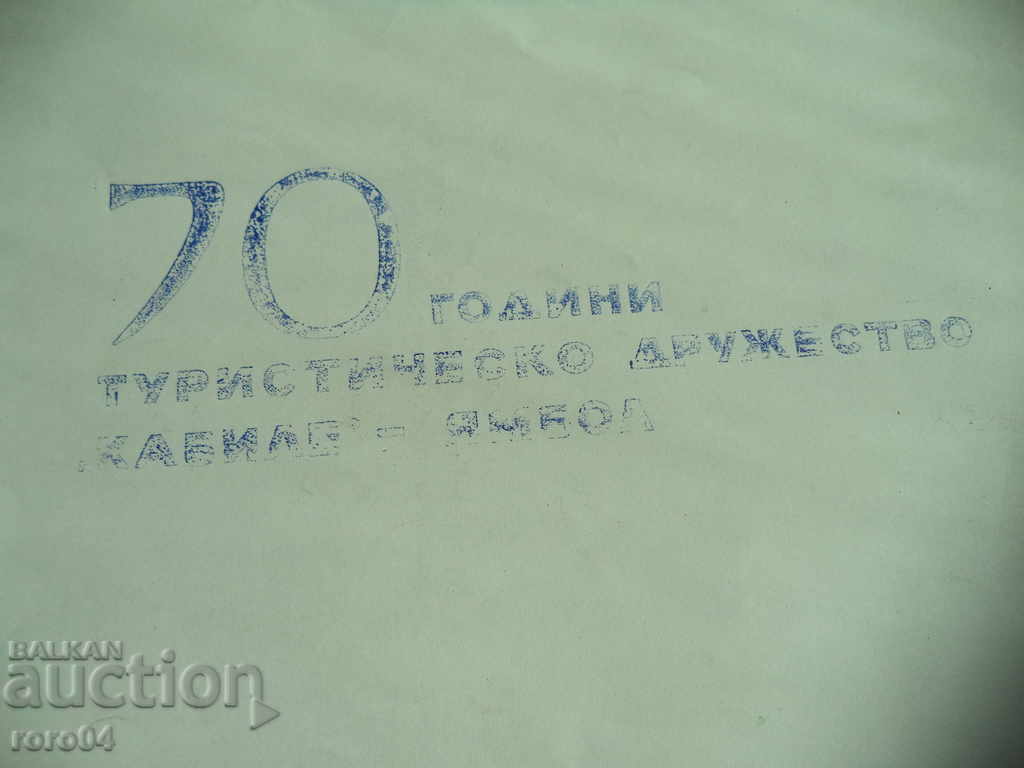 70 ГОДИНИ
ТУРИСТИЧЕСКО ДРУЖЕСТВО
„КАБИЛЕ" - ЯМБОЛ
BALKAN
auction
roro04